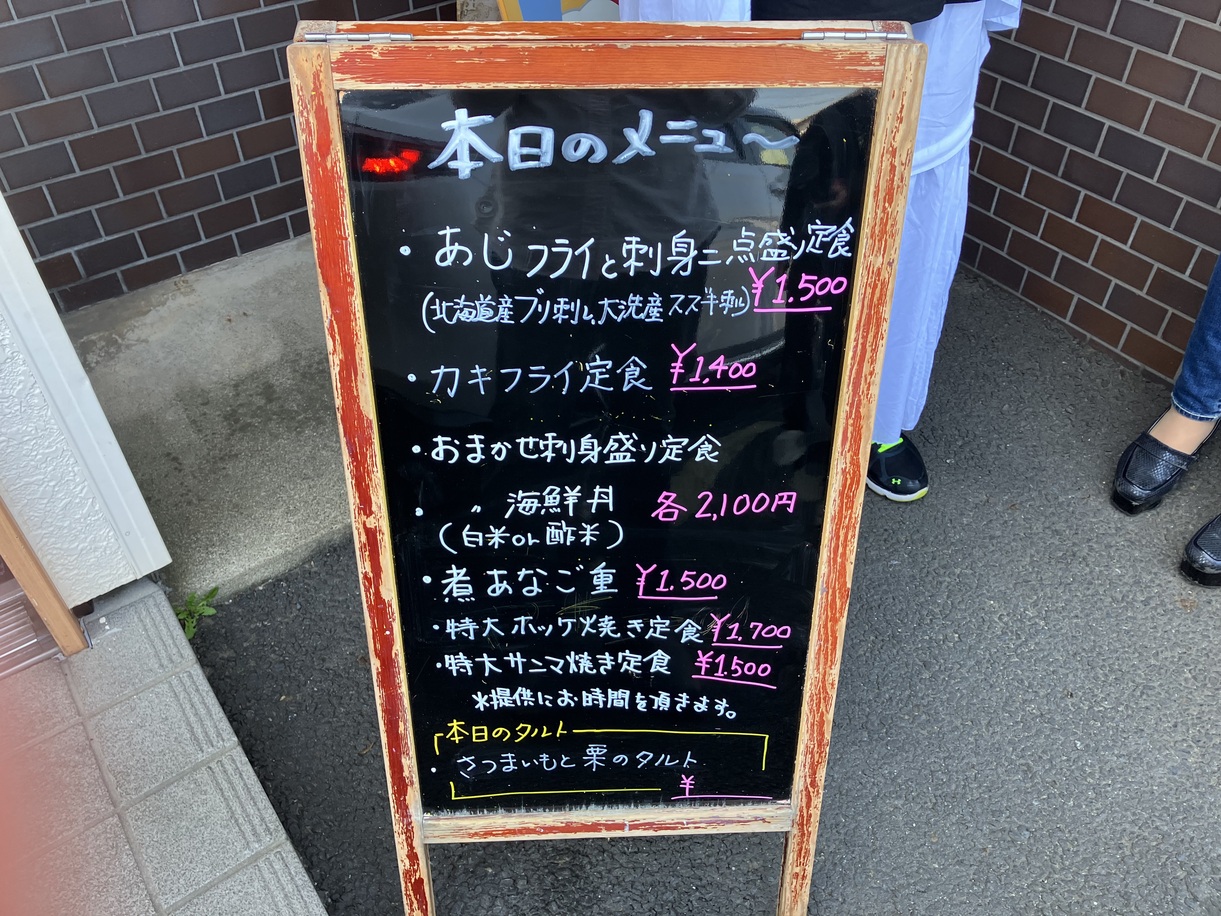 本日のメニュ〜
・あじフライと刺身二点盛り定食
¥1.500
(北海道産ブリ刺し、大洗産スズキ刺し)
・カキフライ定食 ¥1,400
・おまかせ刺身盛り定食
・ 〃 海鮮丼 各2,100円
(白米or酢米)
・煮あなご重 ¥1.500
・特大ホッケ焼き定食 ¥1,700
・特大サンマ焼き定食 ¥1500
※提供にお時間を頂きます。
本日のタルト
・さつまいもと栗のタルト
¥